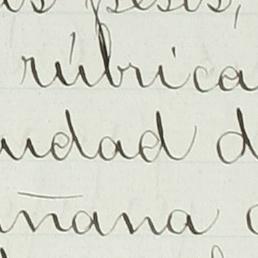 pesos,
rúbrica
udad d
mañana